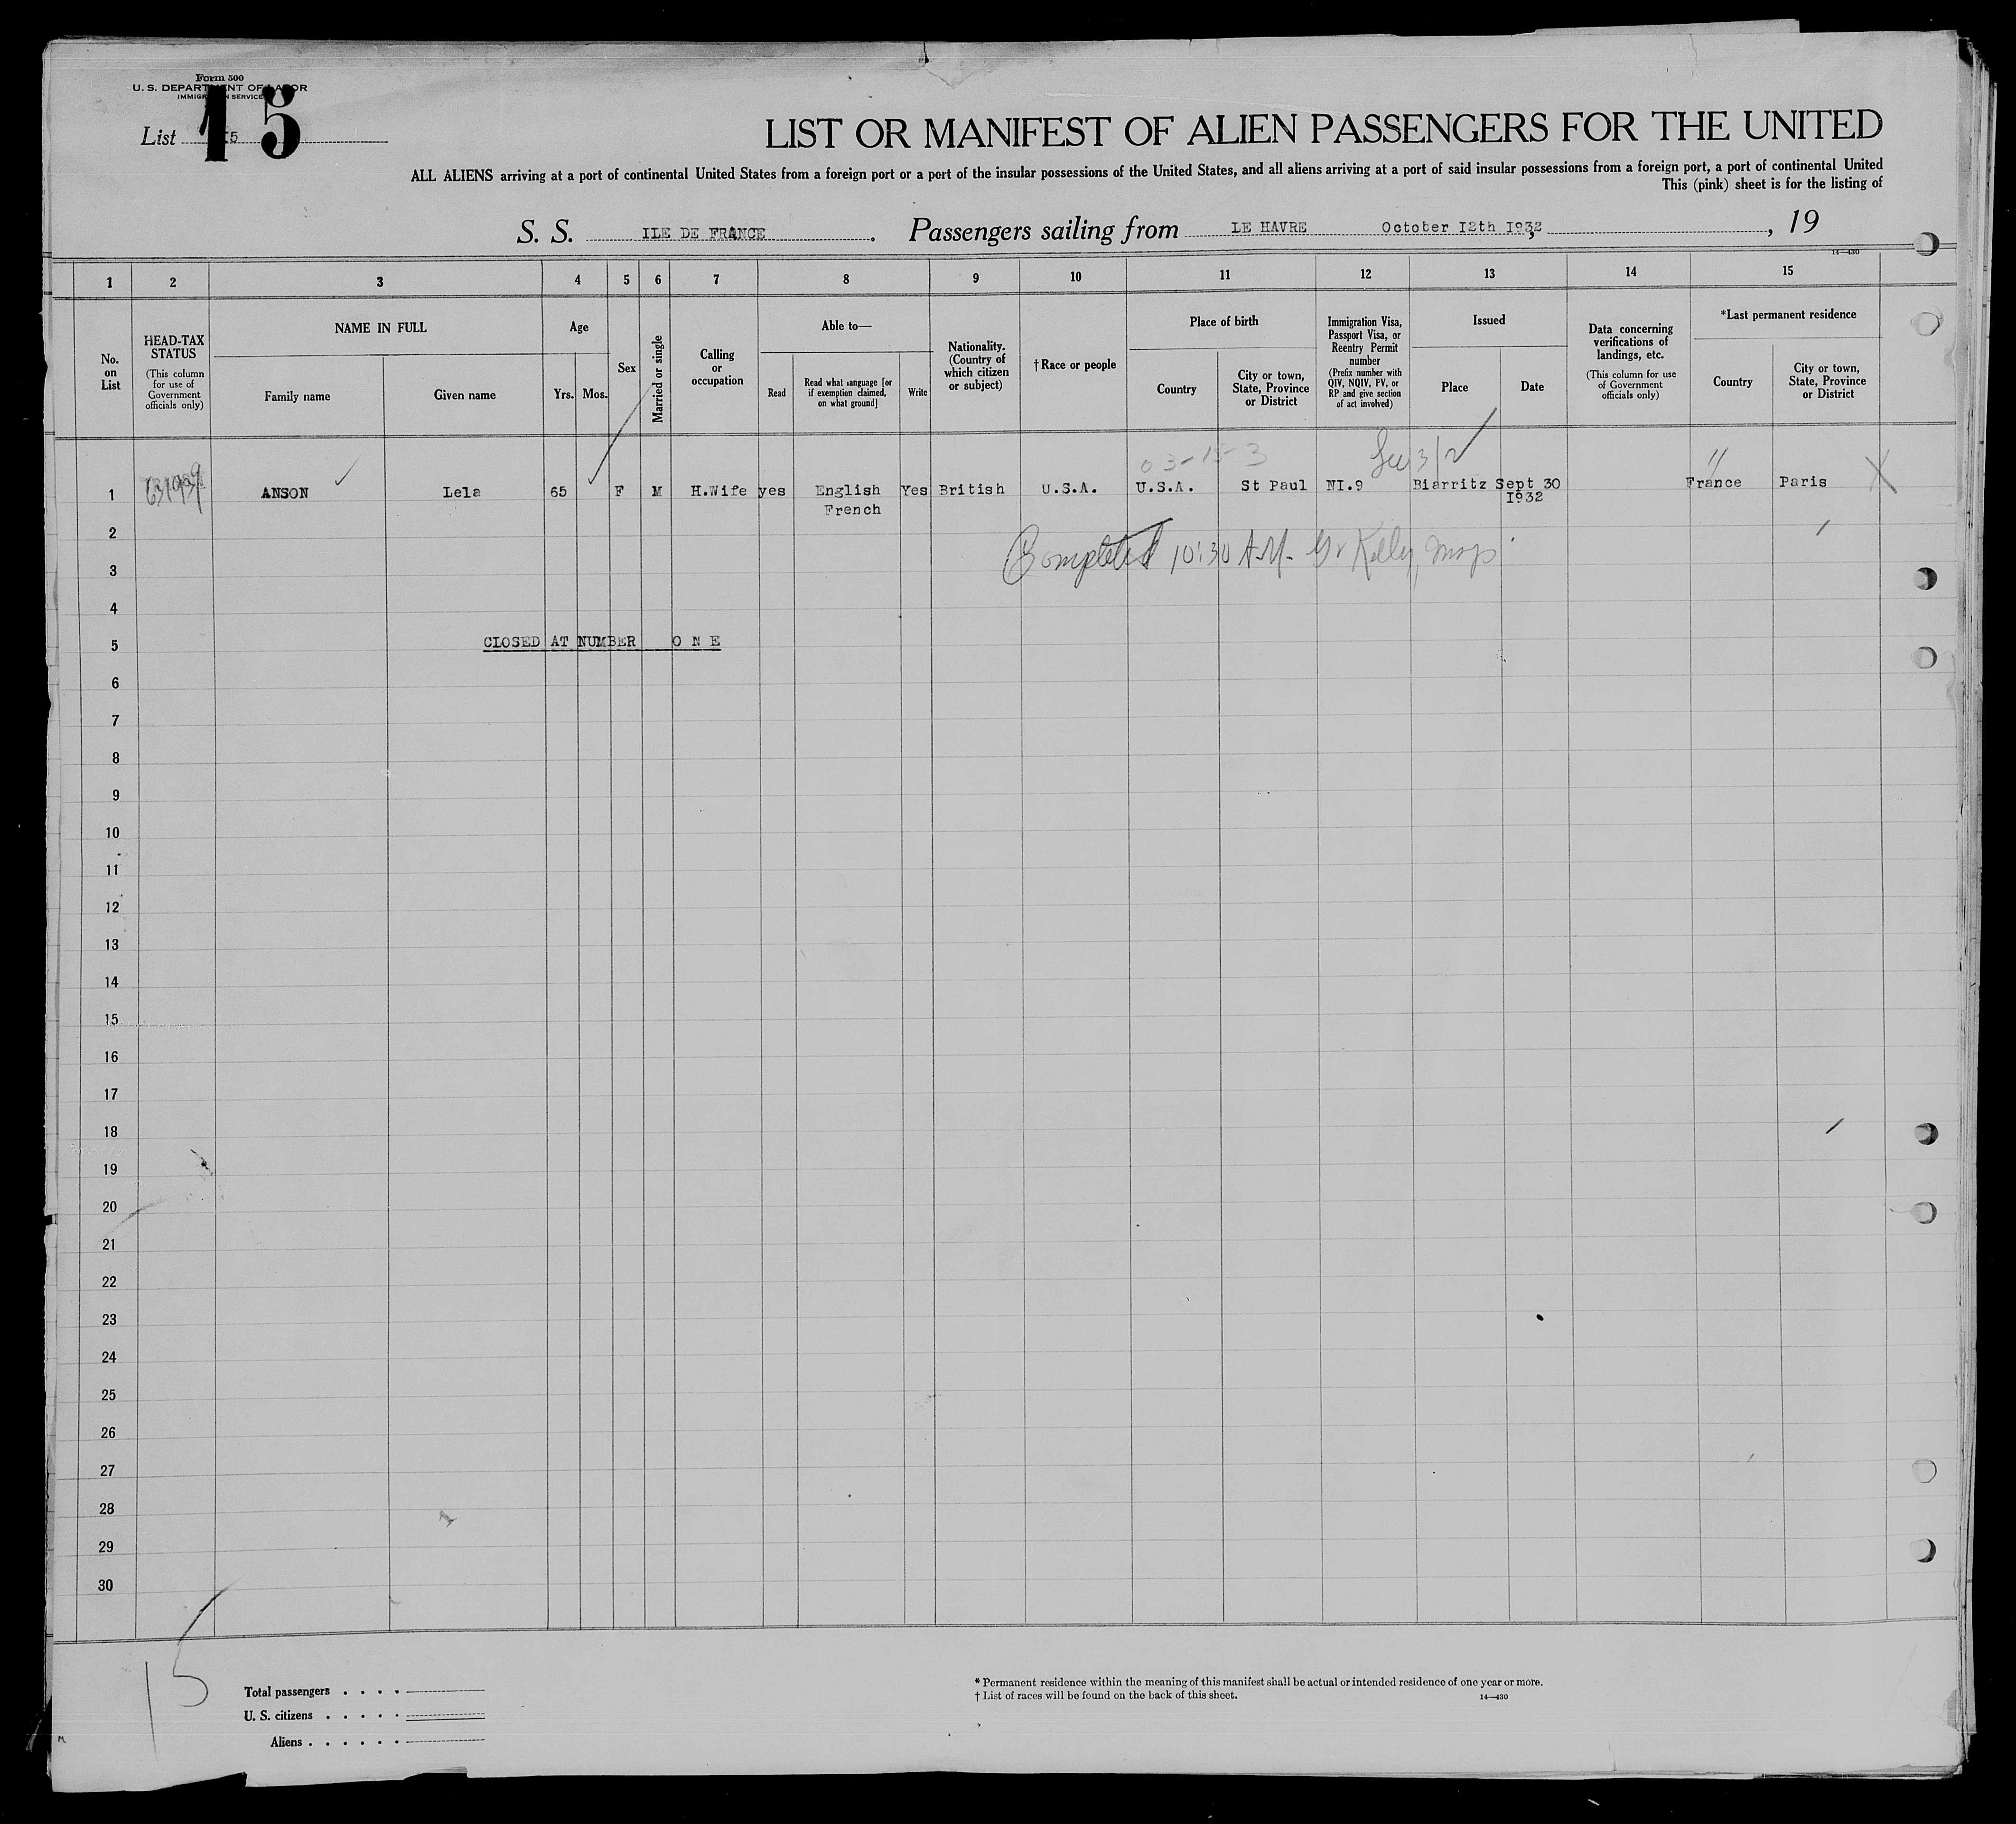 Form 500
U. S. DEPARTMENT OF LABOR
IMMIGRATION SERVICE
List 15
LIST OR MANIFEST OF ALIEN PASSENGERS FOR THE UNITED
ALL ALIENS arriving at a port of continental United States from a foreign port or a port of the insular possessions of the United States, and all aliens arriving at a port of said insular possessions from a foreign port, a port of continental United
This (pink) sheet is for the listing of
S. S. ILE DE FRANCE. Passengers sailing from LE HAVRE October I2th I932, 19
14—430
1 2 3 4 5 6 7 8 9 10 11 12 13 14 15
No. on List
HEAD-TAX STATUS
(This column for use of Government officials only)
NAME IN FULL
Family name
Given name
Age
Yrs.
Mos.
Sex
Married or single
Calling or occupation
Able to—
Read
Read what language [or if exemption claimed, on what ground]
Write
Nationality. (Country of which citizen or subject)
†Race or people
Place of birth
Country
City or town, State, Province or District
Immigration Visa, Passport Visa, or Reentry Permit number
(Prefix number with QIV, NQIV, PV, or RP and give section of act involved)
Issued
Place
Date
Data concerning verifications of landings, etc.
(This column for use of Government officials only)
*Last permanent residence
Country
City or town, State, Province or District
03-15-3
1 ANSON Lela 65 F M H.Wife yes English Yes British U.S.A. U.S.A. St Paul NI.9 Biarritz Sept 30 France Paris
French I932
2
Completed 10:30 A.M. Kelly
3
4
5 CLOSED AT NUMBER O N E
6
7
8
9
10
11
12
13
14
15
16
17
18
19
20
21
22
23
24
25
26
27
28
29
30
15
Total passengers . . . .
U. S. citizens . . . . .
Aliens . . . . . .
* Permanent residence within the meaning of this manifest shall be actual or intended residence of one year or more.
† List of races will be found on the back of this sheet.
14—430